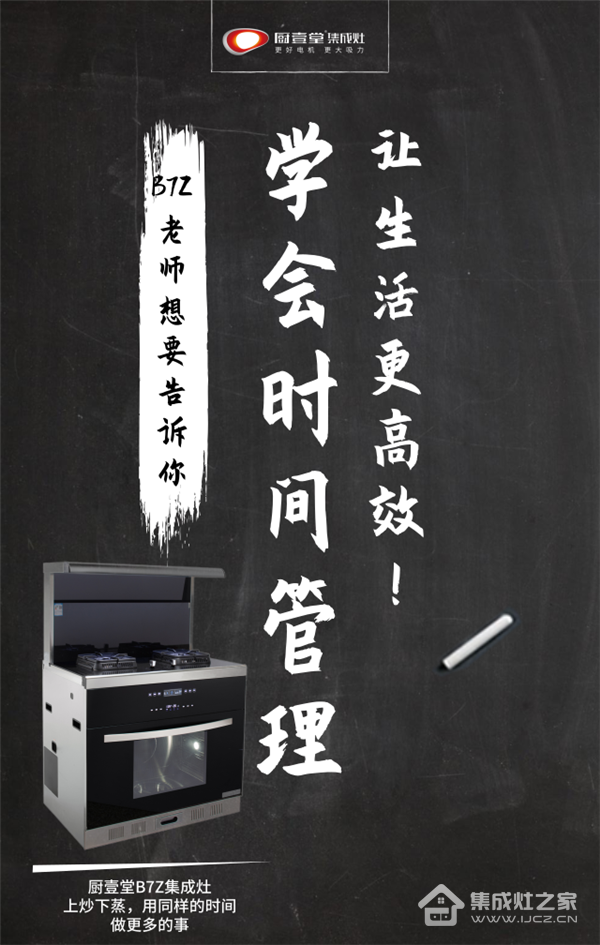 厨壹堂®集成灶
更好电机 更大吸力
让生活更高效！
学会时间管理
B7Z老师想要告诉你
厨壹堂B7Z集成灶
上炒下蒸，用同样的时间
做更多的事
集成灶之家
WWW.IJCZ.CN